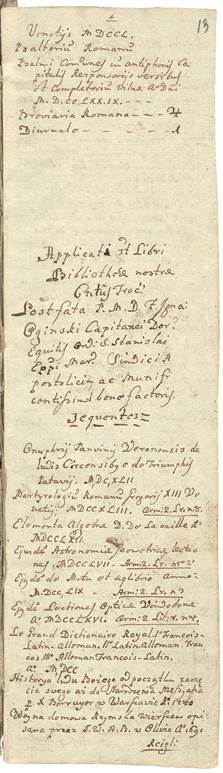 13
Venetijs MDCCL.
Psalteriu Romanu
Psalmi Comunes cu antiphonis Ca
pitulis Responsorijs versibus
et Completoriu Vilnæ Aº Dni
M.D.CC.LXXIX.
Breviaria Romana - - - 4
Diurnale - - - 1
Applicati st Libri
Bibliothecæ nostræ
Cntus Troc.
Post fata P. M. D. F. Igna
Oginski Capitanei Dor.
Equitis O.D.S. Stanislai
Sindici A
postolici, ac Munifi
centissimi benefactoris.
Sequentes
Onuphrij Panvinij Veronensis de
ludis Circensibus de Triumphis
Patavij. MDCXLII
Martyrologiu Romanu Gregorij XIII Ve
netijs. MDCCXLIII. Arm: 2. Lr. nº 8.
Elementa Algebræ D. De la caille Aº
MDCCLXII.
Ejusdē Astronomiæ Geometricæ lectio
nes. MDCCLVII. Arm: 2. Lr. nº 2º
Ejusdē de Motu et æqlibrio Anno
M.DCC,LIX - Arm: 2. Lr. nº 3
Ejusdē Lectiones Opticæ Vindobonæ
Aº MDCCLXVI. Arm: 2. Lit. x. nº 4.
Le Grand Dictionaire Royal. Iº Francois-
Latin-Alleman. IIº Latin Alleman Fran
cois IIIº Alleman Francois-Latin.
Aº MDCC
Historya ludu Bożego od początku zaczę
cia swego aż do Narodzenia Messyasza
P X Berruyer w Warszawie Rº 1740
Woyna domowa Rzymska Wierszem opi
sana przez J. A. B. w Oliwie Aº 1691
Xcięgi